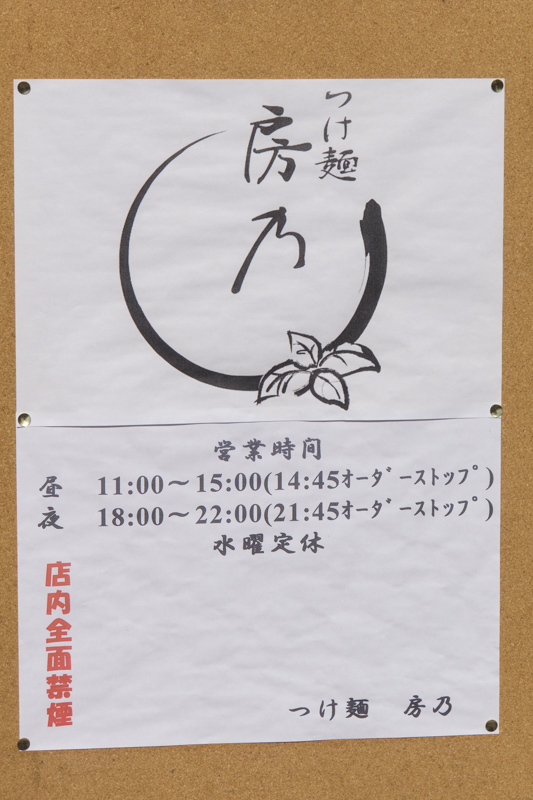 つけ麺
房乃
営業時間
昼 11:00～15:00(14:45ｵｰﾀﾞｰｽﾄｯﾌﾟ)
夜 18:00～22:00(21:45ｵｰﾀﾞｰｽﾄｯﾌﾟ)
水曜定休
店内全面禁煙
つけ麺 房乃